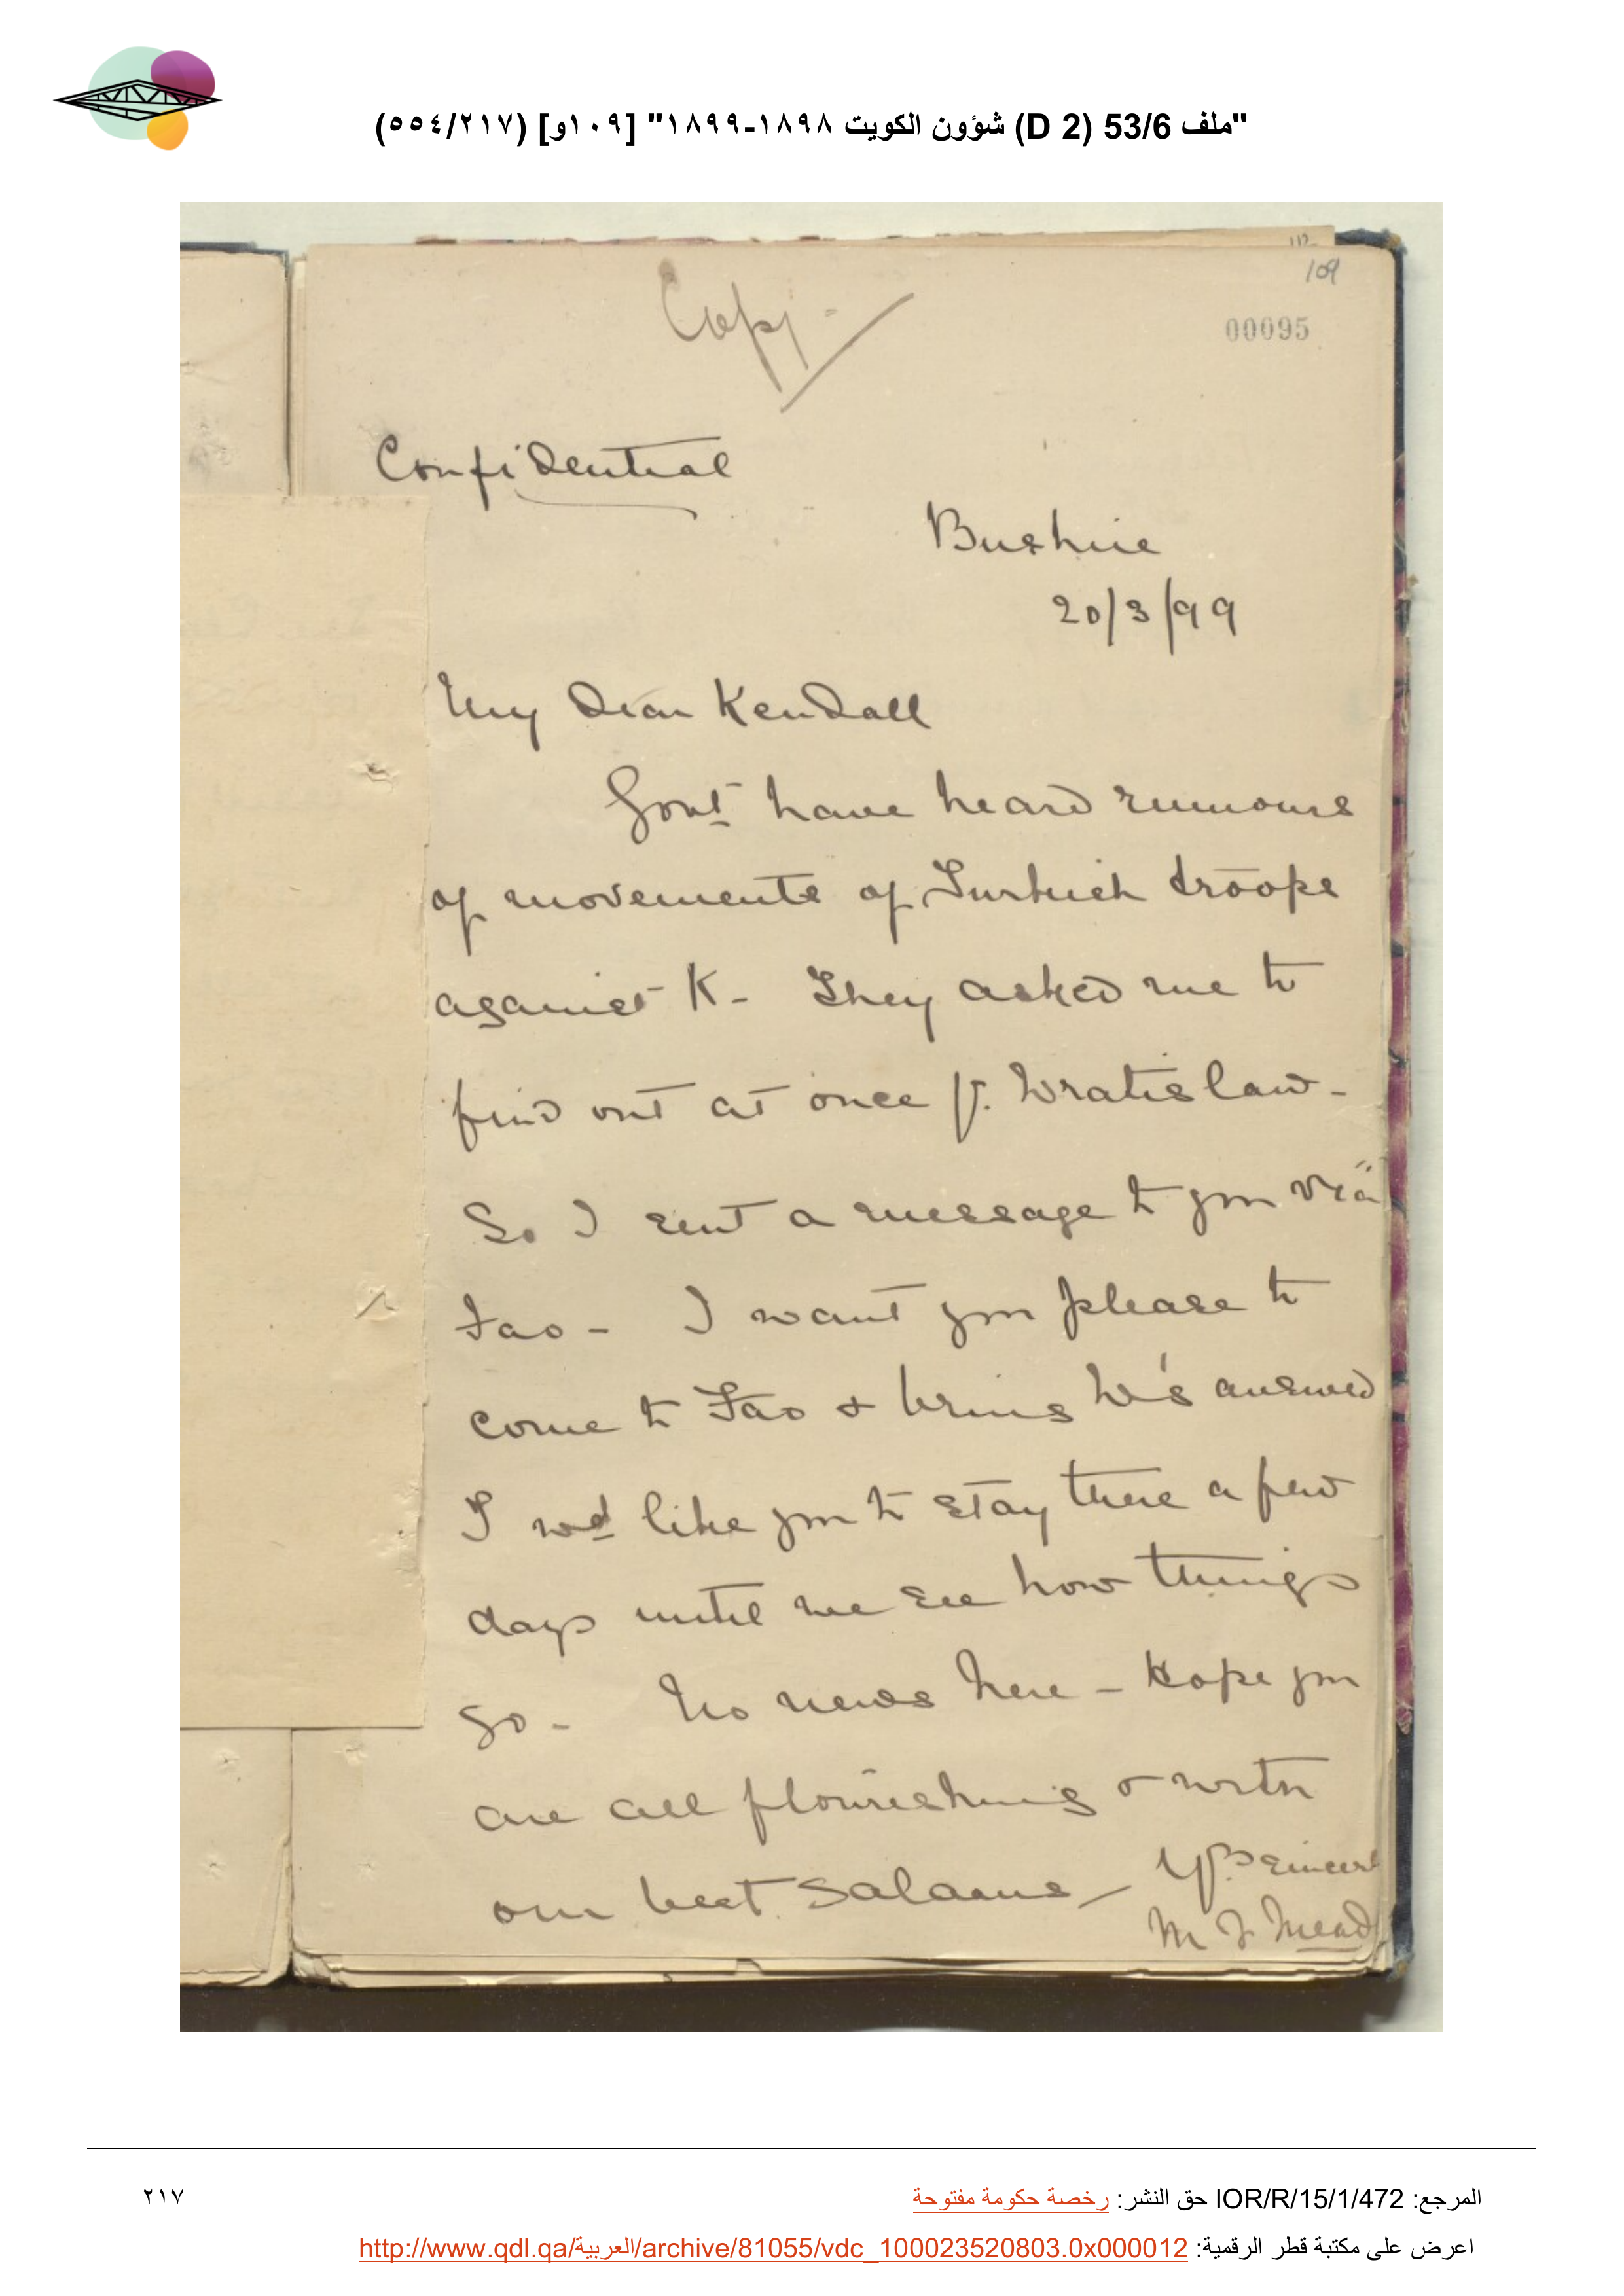 "ملف 53/6 (D 2) شؤون الكويت ١٨٩٨-١٨٩٩" [١٠٩و] (٥٥٤/٢١٧)
112
109
Copy
00095
Confidential
Bushire
20/3/99
My dear Kendall
Govt have heard rumours
of movements of Turkish troops
against K - They asked me to
find out at once fr. Wratislaw -
So I sent a message to you viâ
Fao - I want you please to
come to Fao & bring W's answer
I wd like you to stay there a few
days until we see how things
go - No news here - Hope you
are all flourishing & with
our best salaams - Yrs sincerely
M J Meade
المرجع: IOR/R/15/1/472 حق النشر: رخصة حكومة مفتوحة
٢١٧
اعرض على مكتبة قطر الرقمية: http://www.qdl.qa/العربية/archive/81055/vdc_100023520803.0x000012